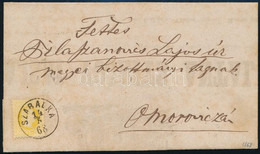 Tettes
Szlapanovics Lajos úr
megyei bizottmányi tagnak
Omorovicza
SZABALKA